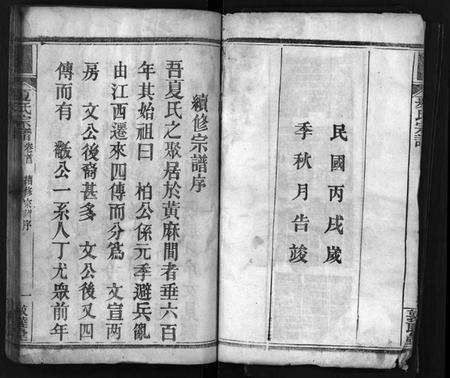 民國丙戌歲
季秋月告竣
續修宗譜序
吾夏氏之聚居於黃麻間者垂六百
年其始祖曰 柏公係元季避兵亂
由江西遷來四傳而分爲 文宣兩
房 文公後裔甚多 文公後又四
傳而有 公一系人丁尤眾前年
夏氏宗譜 卷首 續修宗譜序 一